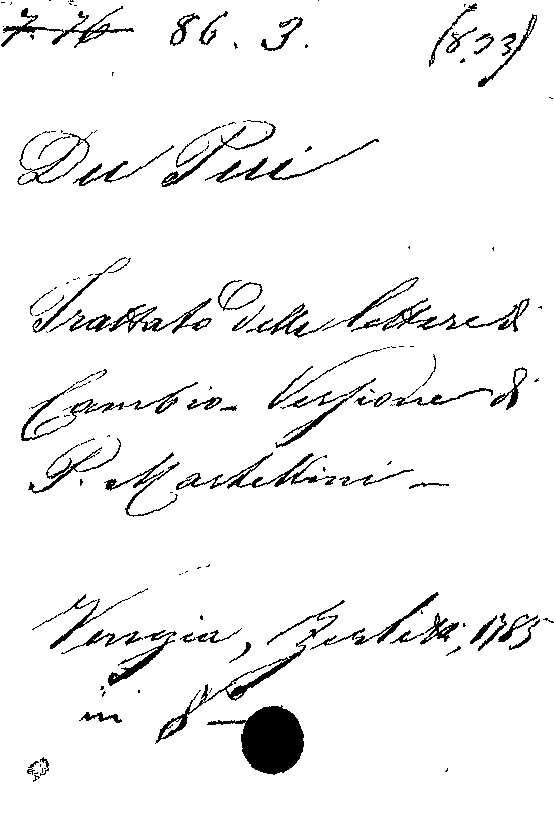 7. 76 86. 3. (8.23)
Du Pui
Trattato delle lettere di
Cambio. Versione di
P. Martellini —
Venezia, Zerletti, 1785
in 8º —